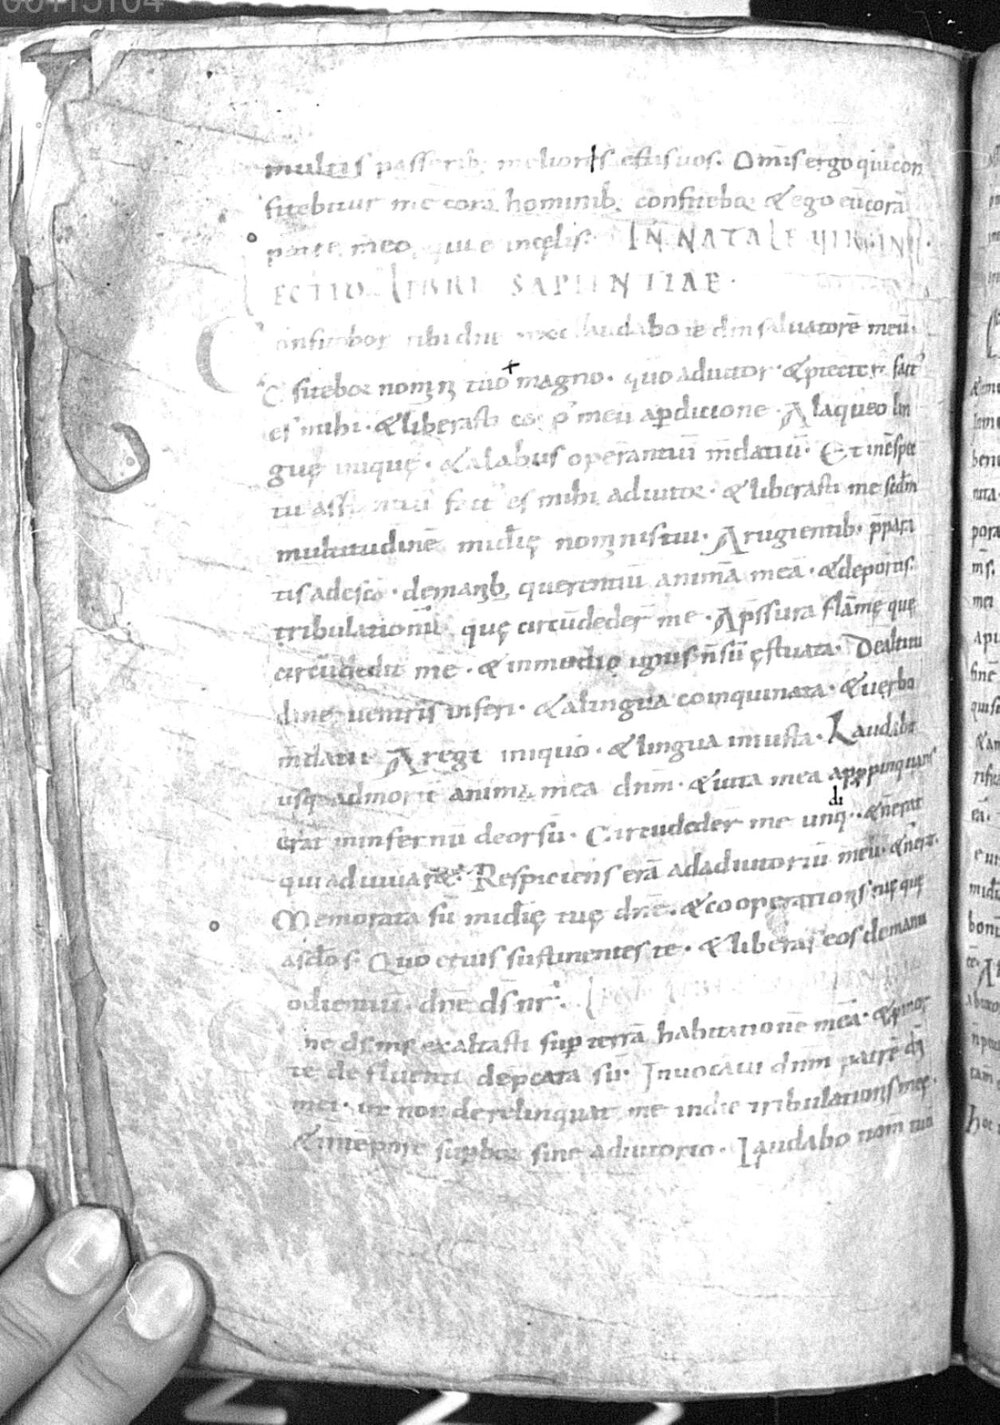 multis passerib; meliores estis vos. Om̄is ergo qui con
fitebitur me corā hominib; confitebor & ego eū corā
patre meo qui ē in cęlis. IN NATALE VIRGINŪ.
LECTIO LIBRI SAPIENTIAE.
Confitebor tibi dn̄e rex & laudabo te dm̄ saluatorē meū.
Cfitebor nomini tuo magno. qm̄ adiutor & ptector fact'
es mihi. & liberasti corp' meū a pditione. A laqueo lin
guę iniquę. & a labiis operantiū mdatiū. Et in cspec
tu astantiū fact' es mihi adiutor. & liberasti me scdm̄
multitudinē mid̄ię nominis tui. A rugientib; p̄para
tis ad escā. de manib; querentiū animā meā. & de portis
tribulationū quę circūdeder̄ me. A p̄ssura flāmę quę
circūdedit me. & in medio ignis n̄ sū ęstuata. De altitu
dine ventris inferi. & a lingua coinquinata. & a verbo
mdatii. A rege iniquo. & lingua iniusta. Laudabit
usq; ad mortē anima mea dnm̄. & uita mea appinquans
erat in infernū deorsū. Circūdeder̄ me undiq;. & n̄ erat
qui adiuuaret. Respiciens erā ad adiutoriū hominū. & n̄ erat.
Memorata sū mid̄ię tuę dn̄e. & cooperationis tuę quę
a sclo s̄. Qm̄ eruis sustinentes te. & liberas eos de manu
odientiū. dn̄e ds̄ nr̄.
ne ds̄ ms̄ exaltasti sup terrā habitationē meā. & p morte
te defluenti depcata sū. Inuocaui dnm̄ patrē dn̄i
mei. ut non derelinquat me in die tribulationis meę.
& in tēpore supbor̄ sine adiutorio. Laudabo nom̄ tuū